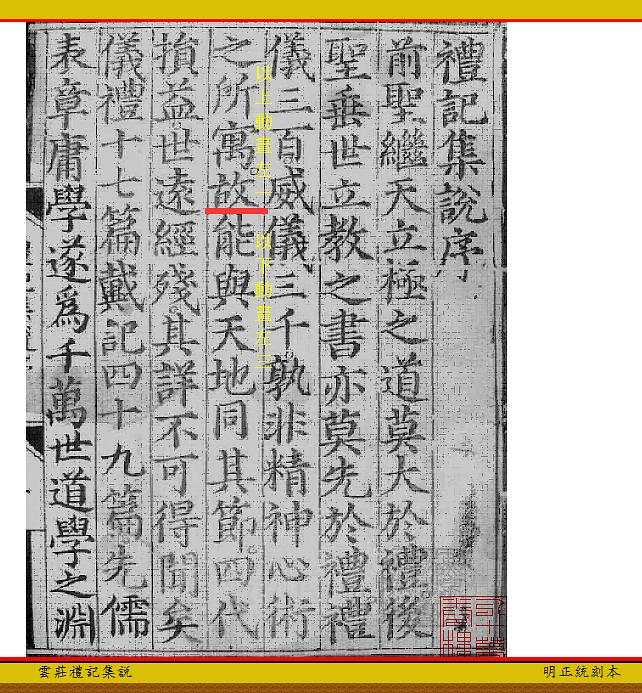 禮記集說序
前聖繼天立極之道莫大於禮後
聖垂世立教之書亦莫先於禮禮
儀三百威儀三千孰非精神心術
之所寓故能與天地同其節四代
損益世遠經殘其詳不可得聞矣
儀禮十七篇戴記四十九篇先儒
表章庸學遂爲千萬世道學之淵
以上動畫左一
以下動畫左三
雲莊禮記集說
明正統刻本